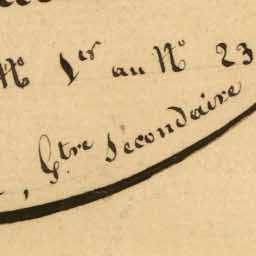 N° 1er au N° 23
Gtre Secondaire